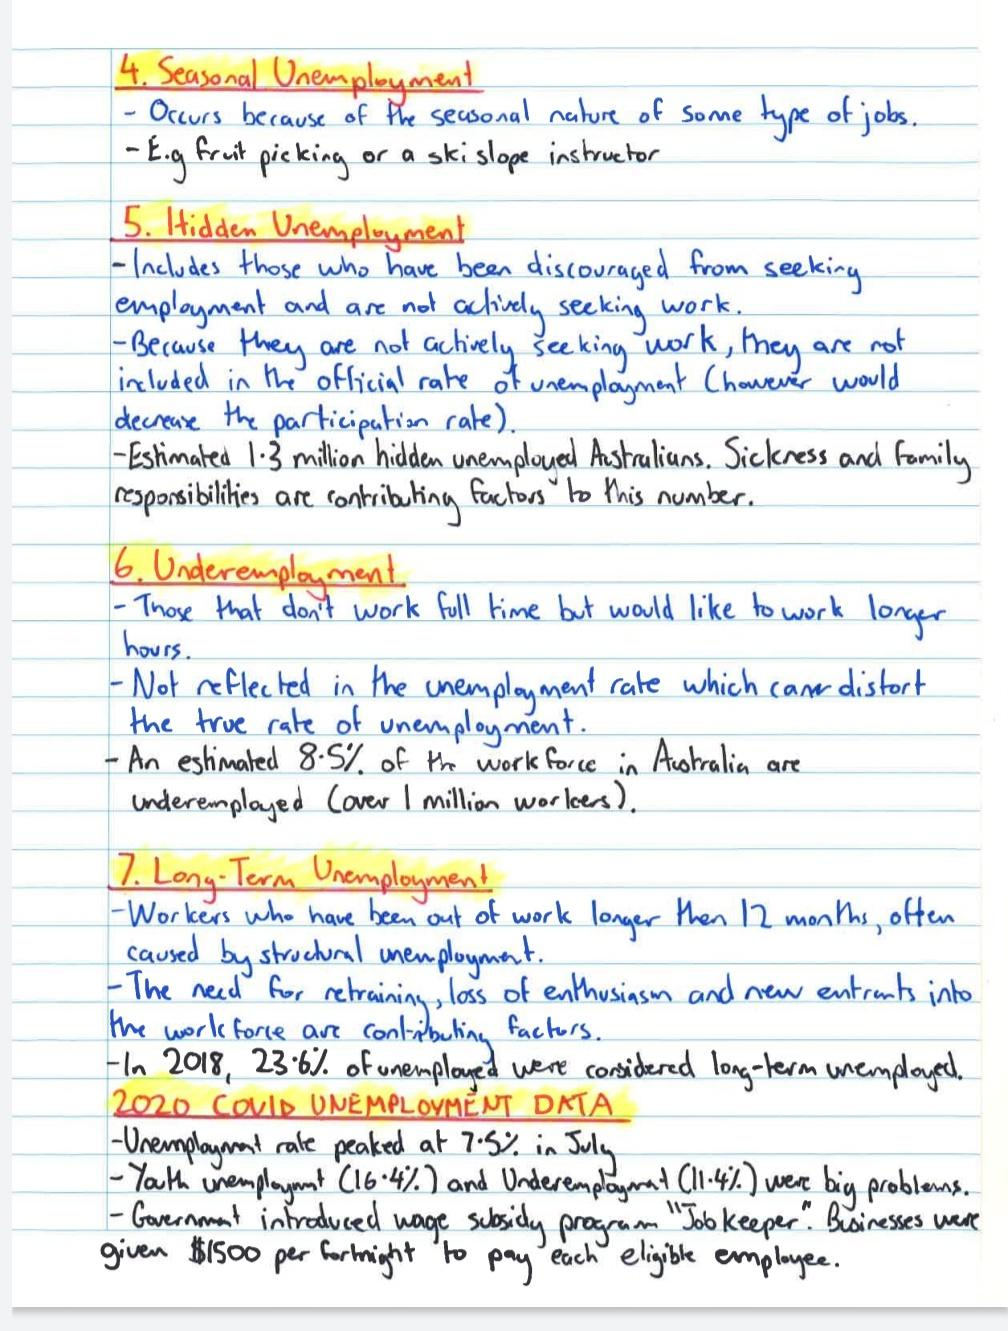 4. Seasonal Unemployment
- Occurs because of the seasonal nature of some type of jobs.
- E.g fruit picking or a ski slope instructor
5. Hidden Unemployment
- Includes those who have been discouraged from seeking
employment and are not actively seeking work.
- Because they are not actively seeking work, they are not
included in the official rate of unemployment (however would
decrease the participation rate).
- Estimated 1.3 million hidden unemployed Australians. Sickness and family
responsibilities are contributing factors to this number.
6. Underemployment
- Those that don't work full time but would like to work longer
hours.
- Not reflected in the unemployment rate which can distort
the true rate of unemployment.
- An estimated 8.5% of the workforce in Australia are
underemployed (over 1 million workers).
7. Long-Term Unemployment
- Workers who have been out of work longer then 12 months, often
caused by structural unemployment.
- The need for retraining, loss of enthusiasm and new entrants into
the workforce are contributing factors.
- In 2018, 23.6% of unemployed were considered long-term unemployed.
2020 COVID UNEMPLOYMENT DATA
- Unemployment rate peaked at 7.5% in July
- Youth unemployment (16.4%) and Underemployment (11.4%) were big problems.
- Government introduced wage subsidy program "Jobkeeper". Businesses were
given $1500 per fortnight to pay each eligible employee.